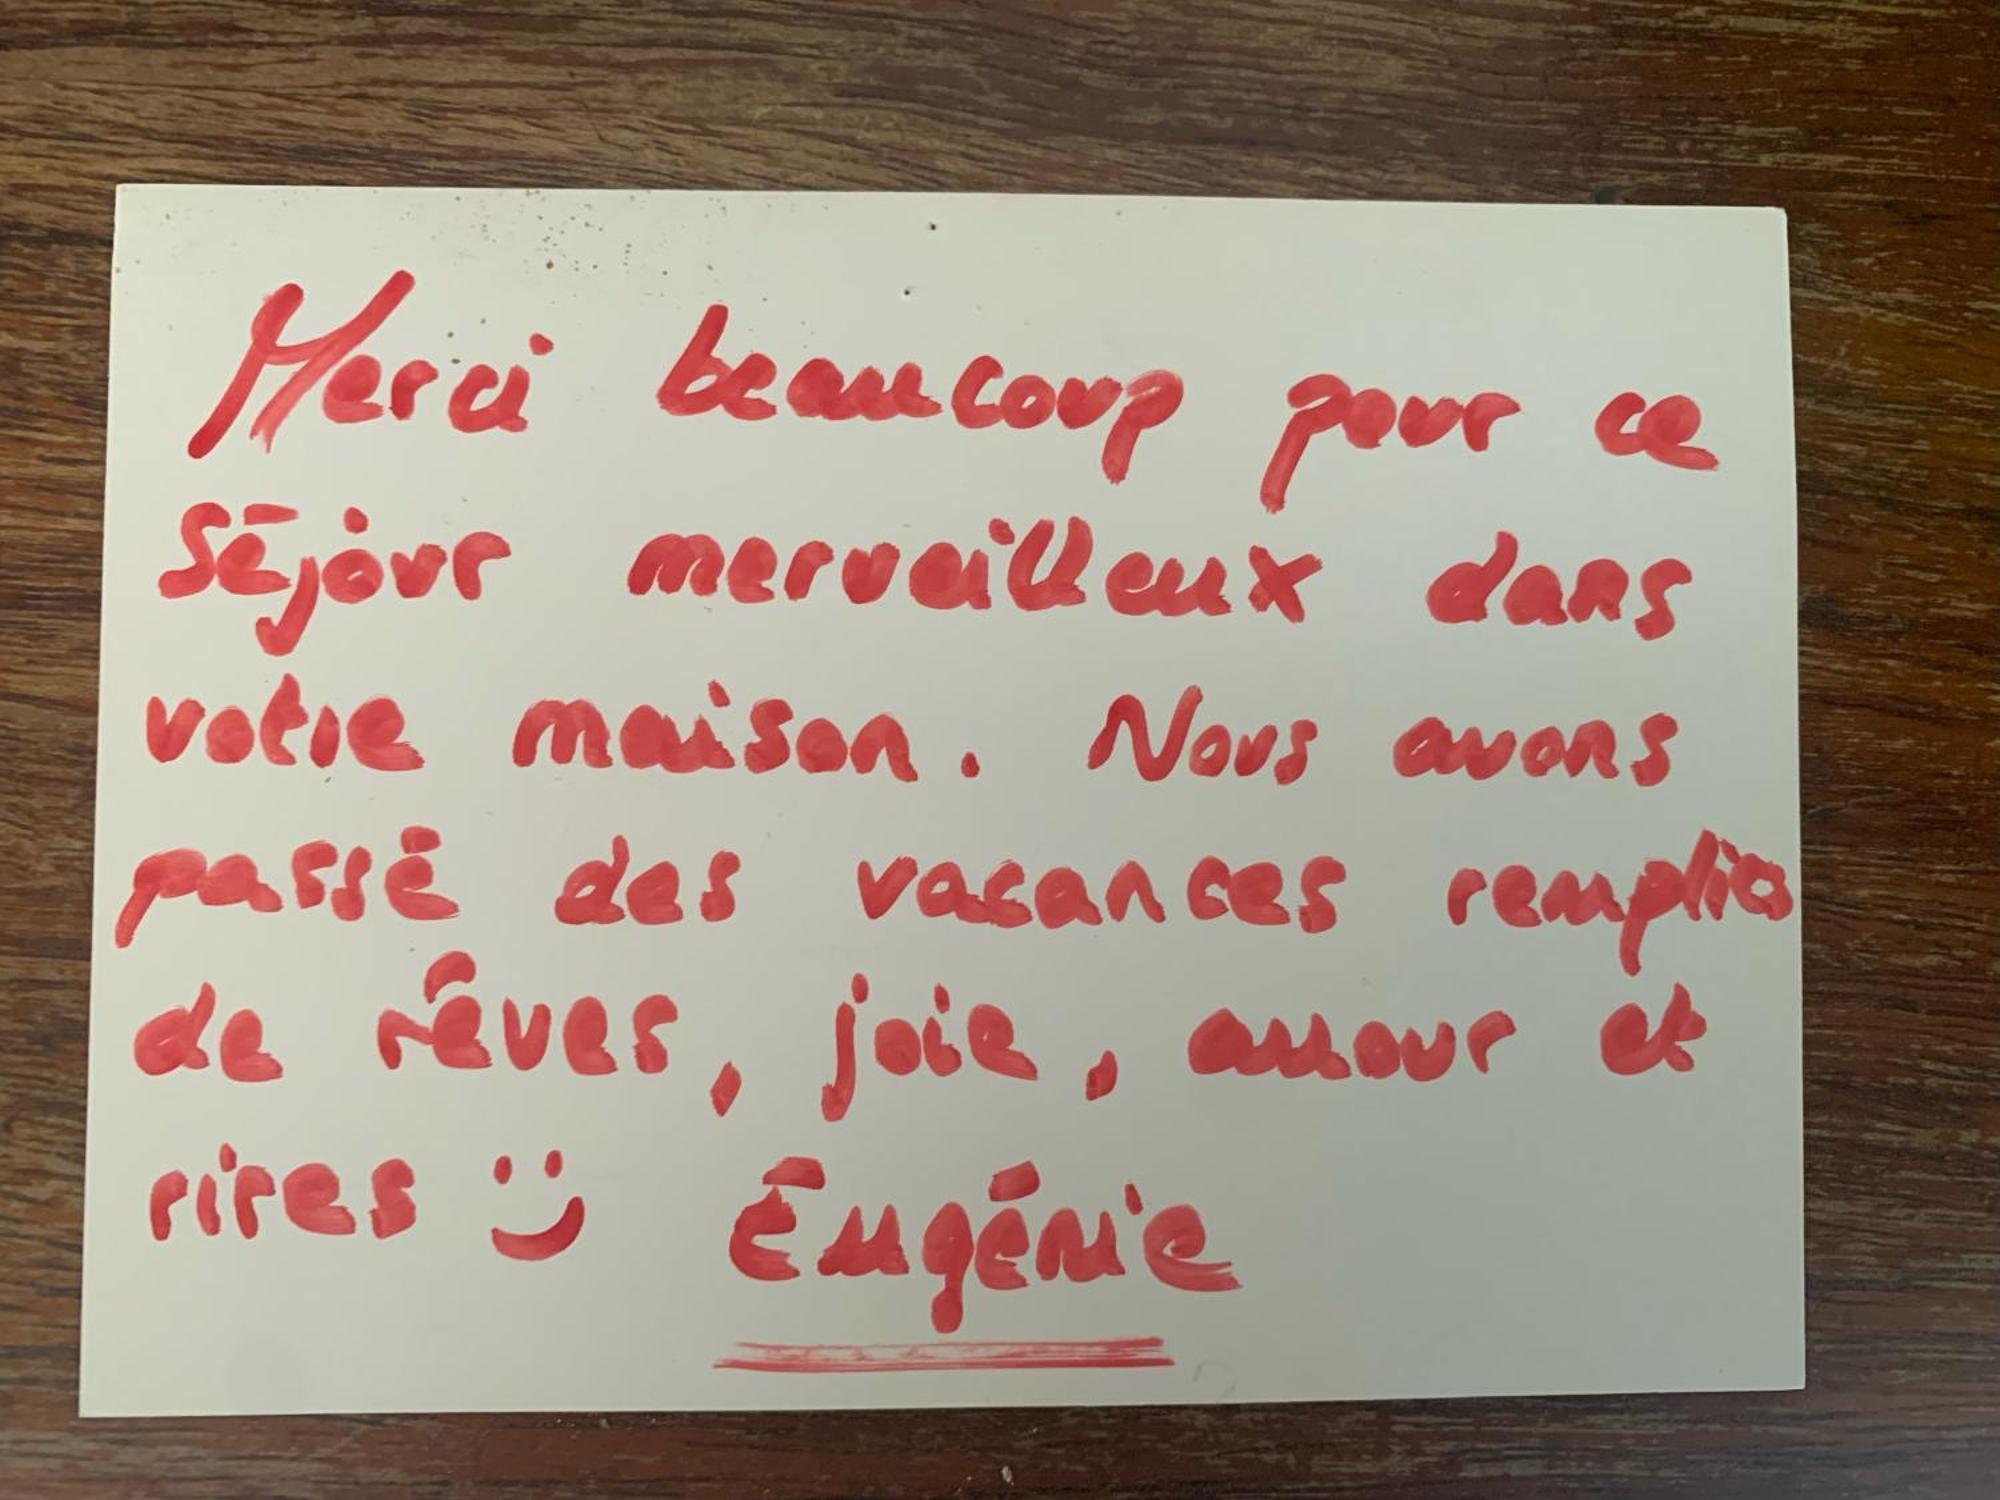 Merci beaucoup pour ce
séjour merveilleux dans
votre maison. Nous avons
passé des vacances remplies
de rêves, joie, amour et
rires :)
Eugénie